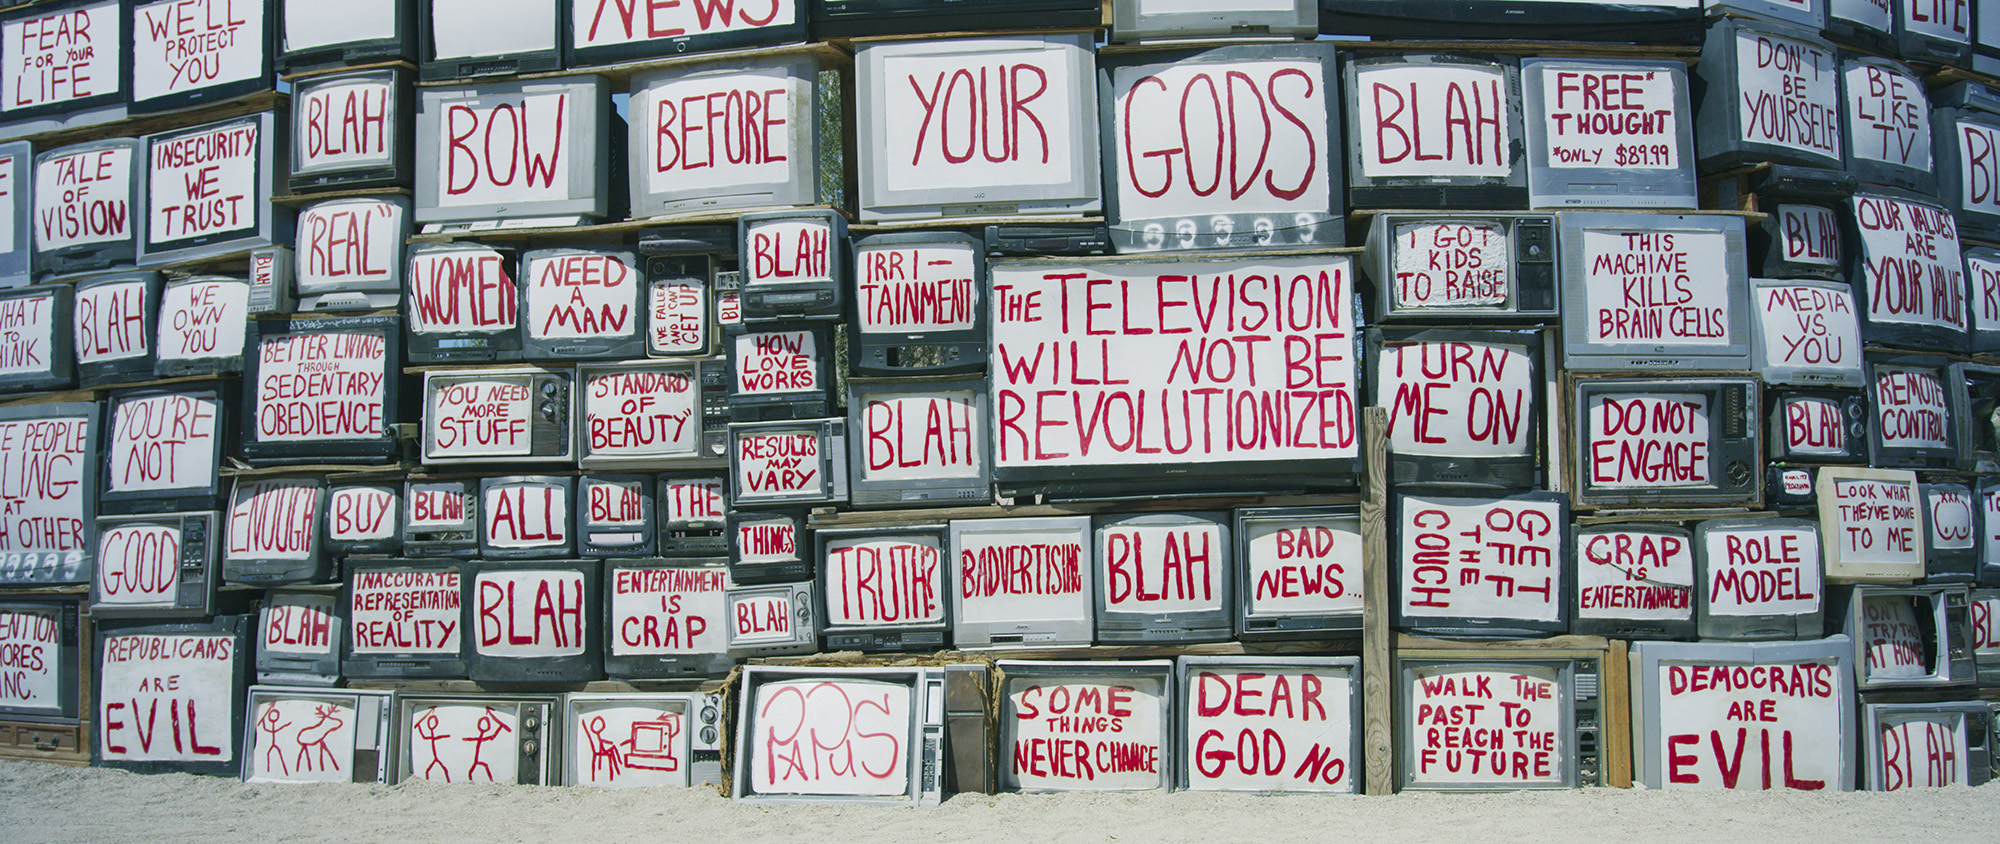 FEAR
FOR YOUR
LIFE
WE'LL
PROTECT
YOU
NEWS
LIFE
BLAH
BOW
BEFORE
YOUR
GODS
BLAH
FREE*
THOUGHT
*ONLY $89.99
DON'T
BE
YOURSELF
BE
LIKE
TV
TALE
OF
VISION
INSECURITY
WE
TRUST
"REAL"
BLAH
WOMEN
NEED
A
MAN
I'VE FALLEN
AND I CAN'T
GET UP
BLAH
IRRI-
TAINMENT
THE TELEVISION
WILL NOT BE
REVOLUTIONIZED
I GOT
KIDS
TO RAISE
THIS
MACHINE
KILLS
BRAIN CELLS
BLAH
OUR VALUES
ARE
YOUR VALUE
TO
BLAH
WE
OWN
YOU
BLAH
BETTER LIVING
THROUGH
SEDENTARY
OBEDIENCE
YOU NEED
MORE
STUFF
"STANDARD
OF
"BEAUTY"
HOW
LOVE
WORKS
BLAH
TURN
ME ON
MEDIA
VS.
YOU
DO NOT
ENGAGE
BLAH
REMOTE
CONTROL
PEOPLE
AT
OTHER
YOU'RE
NOT
RESULTS
MAY
VARY
GOOD
ENOUGH
BUY
BLAH
ALL
BLAH
THE
THINGS
TRUTH?
BADVERTISING
BLAH
BAD
NEWS...
GET
OFF
THE
COUCH
CRAP
IS
ENTERTAINMENT
ROLE
MODEL
LOOK WHAT
THEY'VE DONE
TO ME
XXX
INC.
BLAH
INACCURATE
REPRESENTATION
OF
REALITY
BLAH
ENTERTAINMENT
IS
CRAP
BLAH
TRY THIS
AT HOME
REPUBLICANS
ARE
EVIL
PAPUS
SOME
THINGS
NEVER CHANGE
DEAR
GOD NO
WALK THE
PAST TO
REACH THE
FUTURE
DEMOCRATS
ARE
EVIL
BLAH